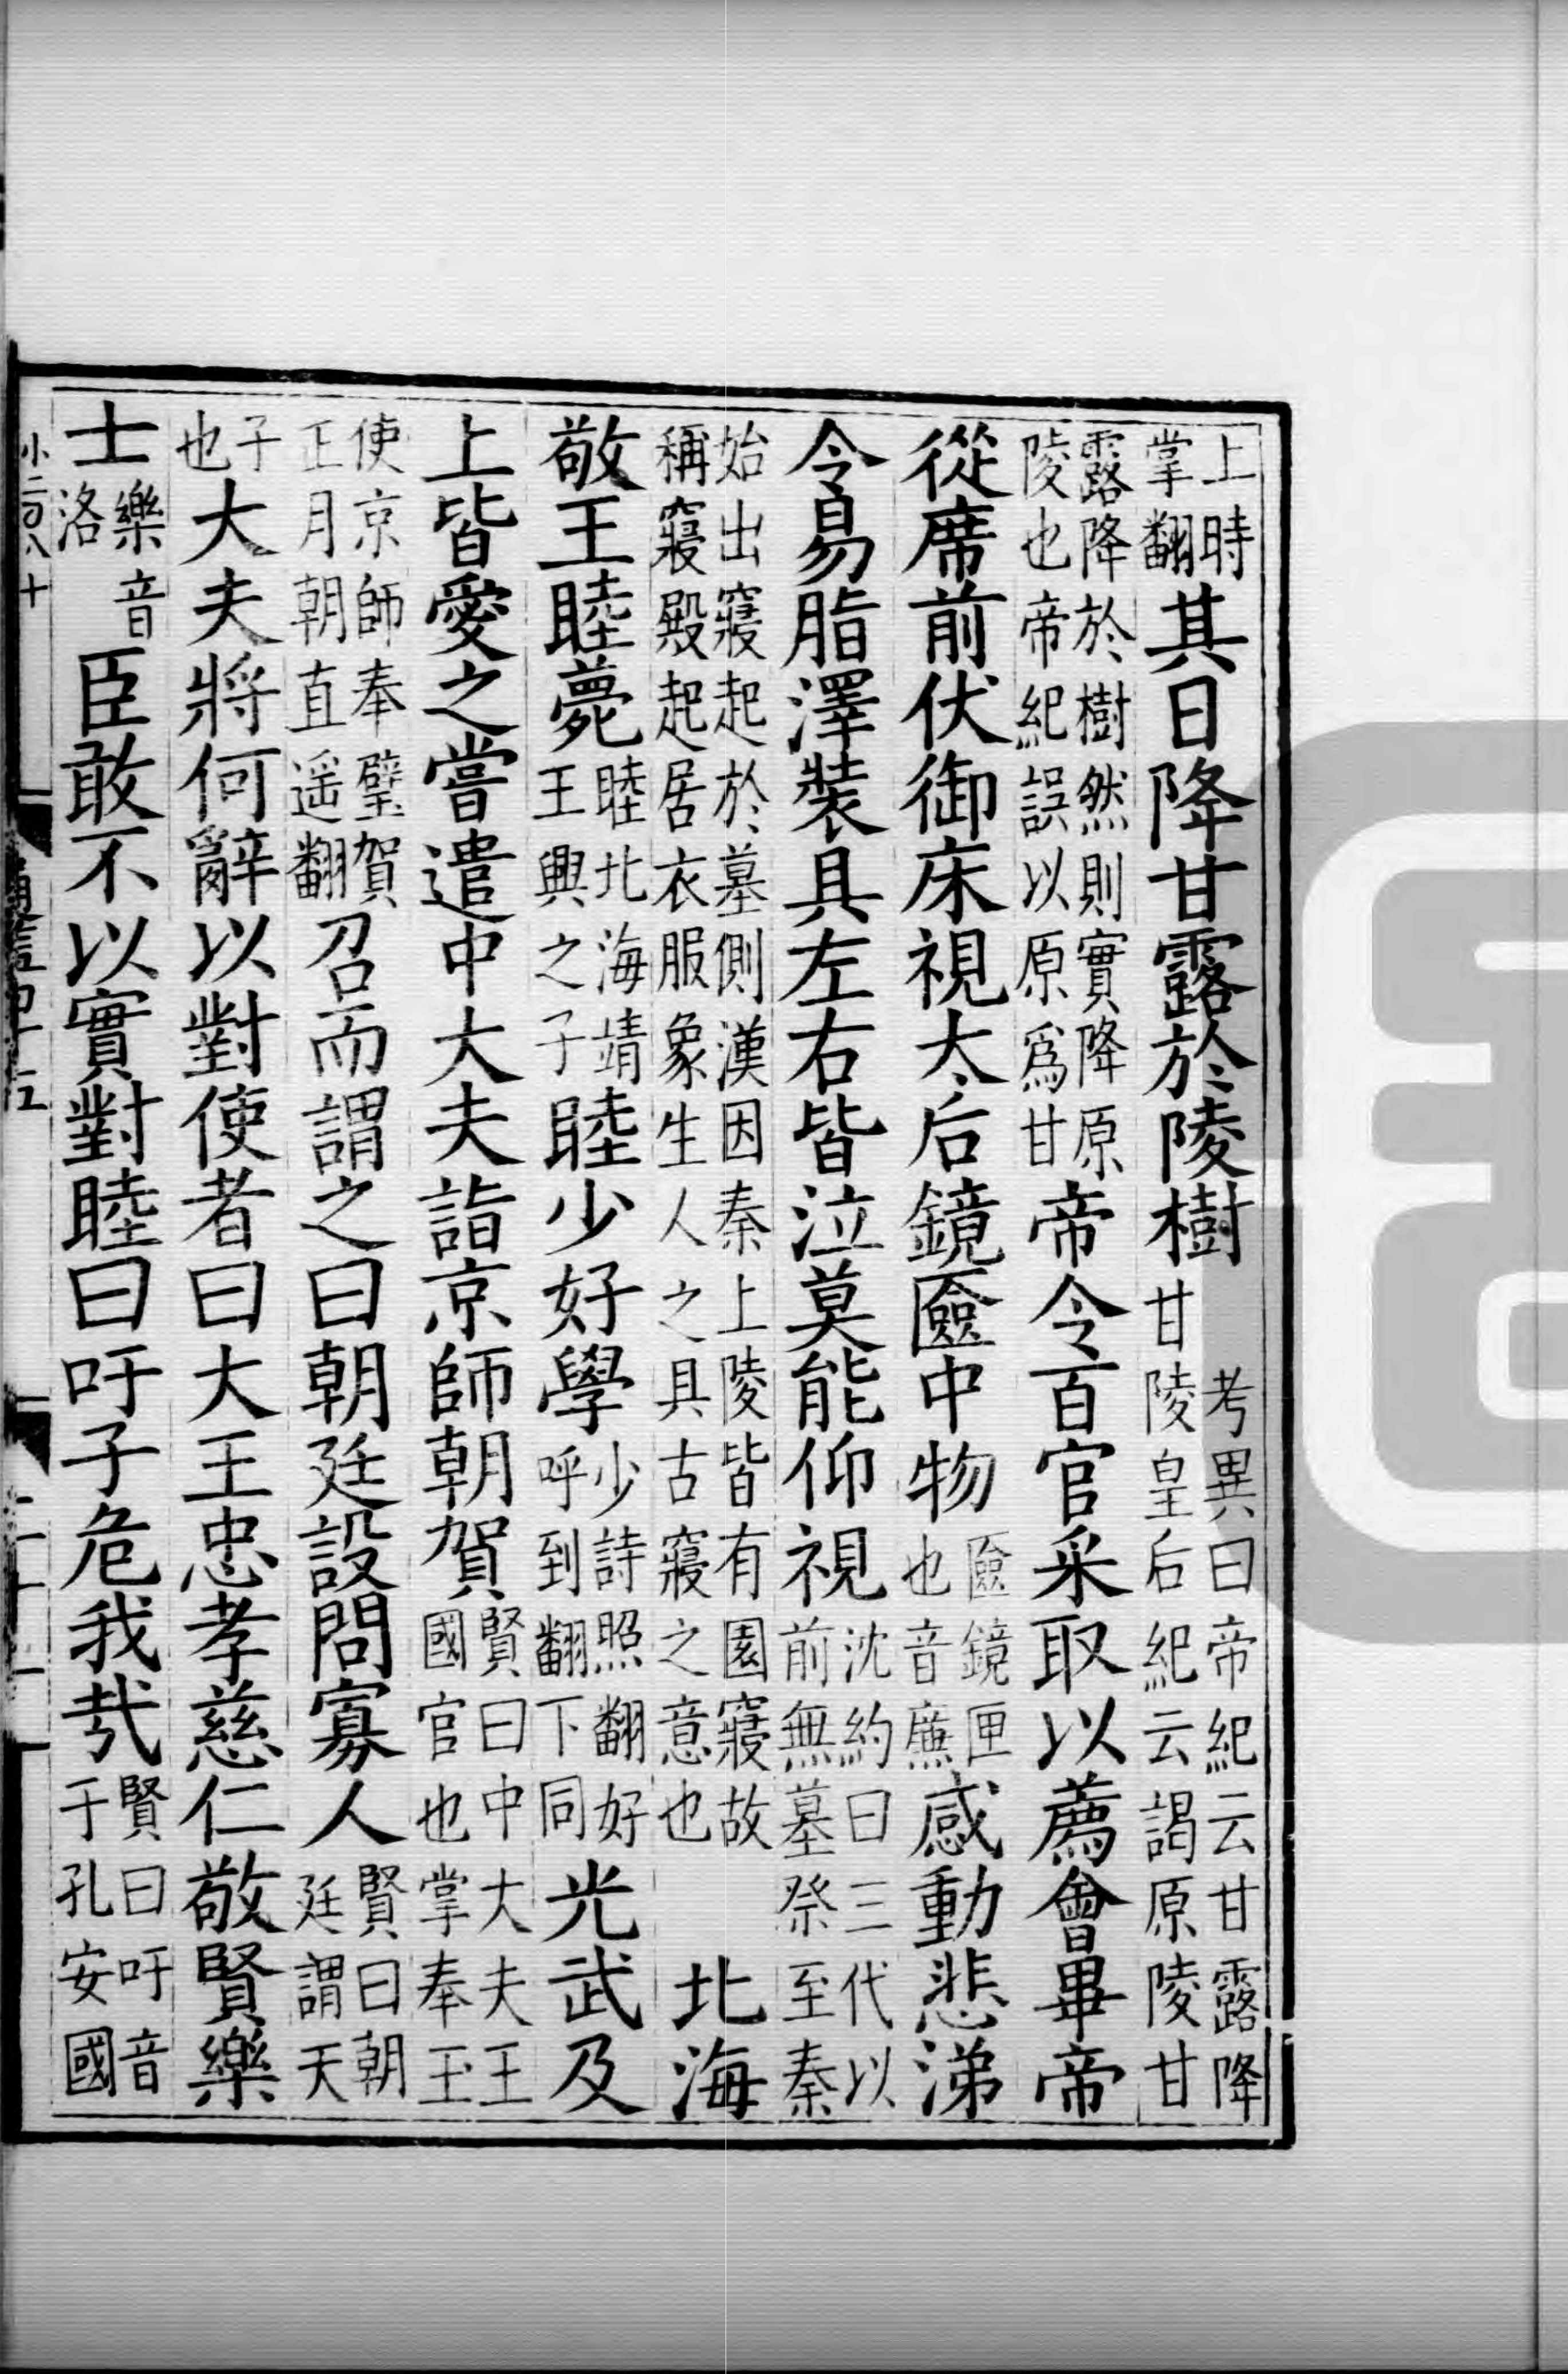 上時掌翻其日降甘露於陵樹考異曰帝紀云甘露降甘陵皇后紀云謁原陵甘
露降於樹然則實降原陵也帝紀誤以原爲甘帝令百官采取以薦會畢帝
從席前伏御床視太后鏡匳中物匳鏡匣也音廉感動悲涕
令易脂澤裝具左右皆泣莫能仰視沈約曰三代以前無墓祭至秦
始出寢起於墓側漢因秦上陵皆有園寢故稱寢殿起居衣服象生人之具古寢之意也北海
敬王睦薨睦北海靖王興之子睦少好學少詩照翻好呼到翻下同光武及
上皆愛之嘗遣中大夫詣京師朝賀賢曰中大夫王國官也掌奉王
使京師奉璧賀正月朝直遥翻召而謂之曰朝廷設問寡人賢曰朝廷謂天
子也大夫將何辭以對使者曰大王忠孝慈仁敬賢樂
士樂音洛臣敢不以實對睦曰吁子危我哉賢曰吁音于孔安國